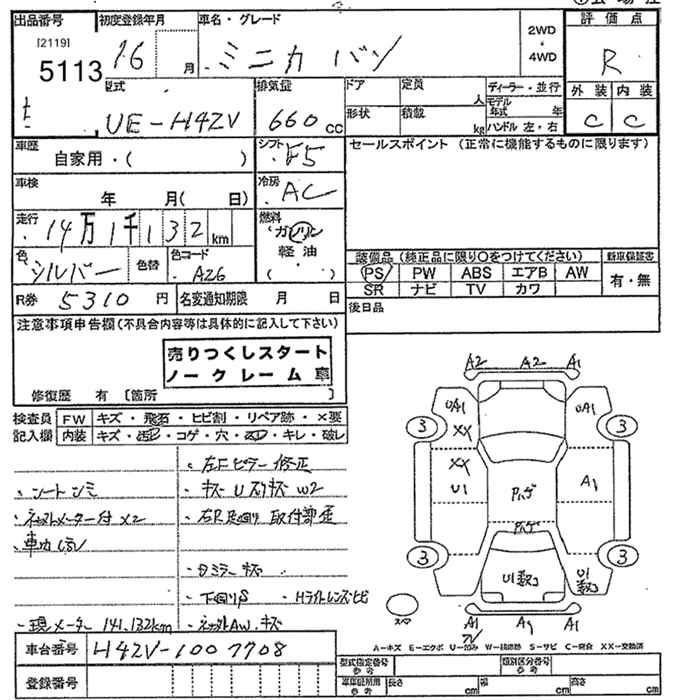 出品番号 初度登録年月 車名・グレード 2WD・4WD 評価点
[2119]
5113 16 月 ミニカ バン R
型式 排気量 ドア 定員 人 ディーラー・並行 外装 内装
UE-H42V 660 cc 形状 積載 kg モデル年式 年 ハンドル 左・右 C C
車歴 自家用・( ) シフト F5 セールスポイント (正常に機能するものに限ります)
車検 年 月( 日) 冷房 AC
走行 14万1千132km 燃料 ガソリン 軽油 ( ・ )
色 シルバー 色替 色コード A26 装備品 (純正品に限り○をつけてください) 新車保証書
PS PW ABS エアB AW 有・無
SR ナビ TV カワ
R券 5310 円 名変通知期限 月 日 後日品
注意事項申告欄(不具合内容等は具体的に記入して下さい)
売りつくしスタート
ノークレーム車
修復歴 有 [箇所
検査員 FW キズ・飛石・ヒビ割・リペア跡・×要
記入欄 内装 キズ・汚レ・コゲ・穴・凹ミ・キレ・破レ
・左Fピラー修正
・シートシミ ・キズ U スリキズ W2
X2 ・右R足廻り 取付部歪
・ミラーキズ
・下廻りS ・Hライトレンズヒビ
・現メーター 141,132km AW.キズ
車台番号 H42V-1007708
登録番号
A2 A2 A1
UA1 UA1
3 XX 3
XX
U1 Pハゲ A1
Pハゲ
3 3
U1数コ U1数コ
スペア A1 A1 A1
A-キズ E-エクボ U-凹み W-補修跡 S-サビ C-腐食 XX-交換済
型式指定番号 参考 類別区分番号 参考
車車証所用 参考 長さ cm 幅 cm 高さ cm